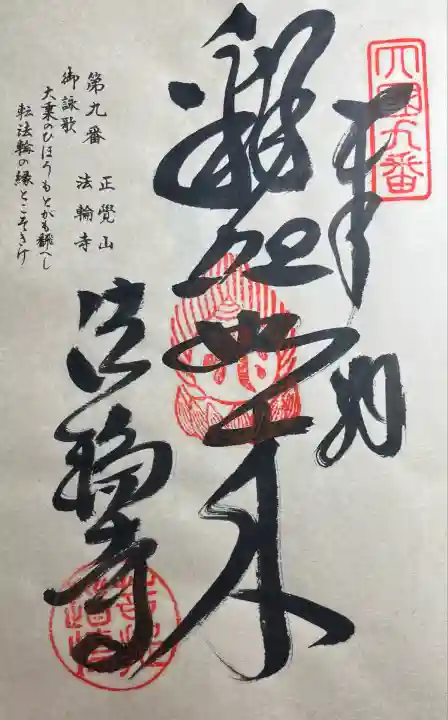 四国九番
奉
納
釋迦如来
法輪寺
第九番 正覺山 法輪寺
御詠歌
大乗のひほうもとがも飜へし
転法輪の縁とこそきけ